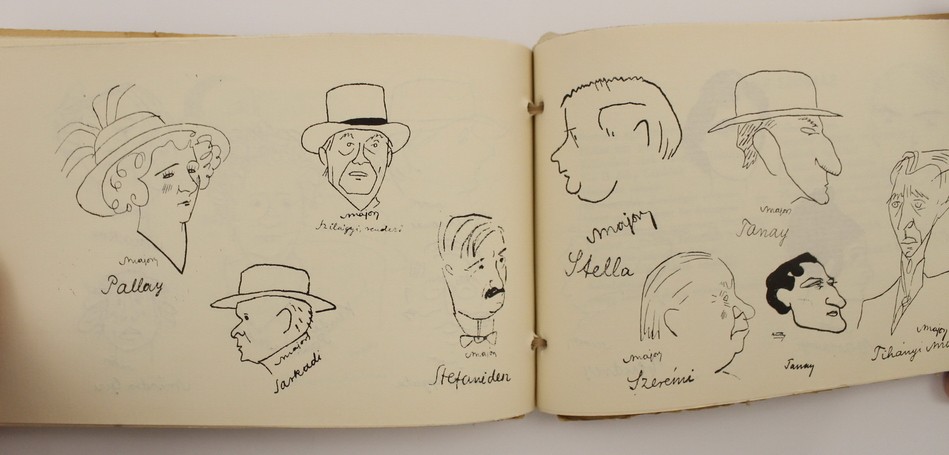 major
Pallay
major
Szilágyi, rendezö
major
Sarkadi
major
Stefanidesz
major
Stella
major
Tanay
major
Szerémi
Tanay
major
Tihányi